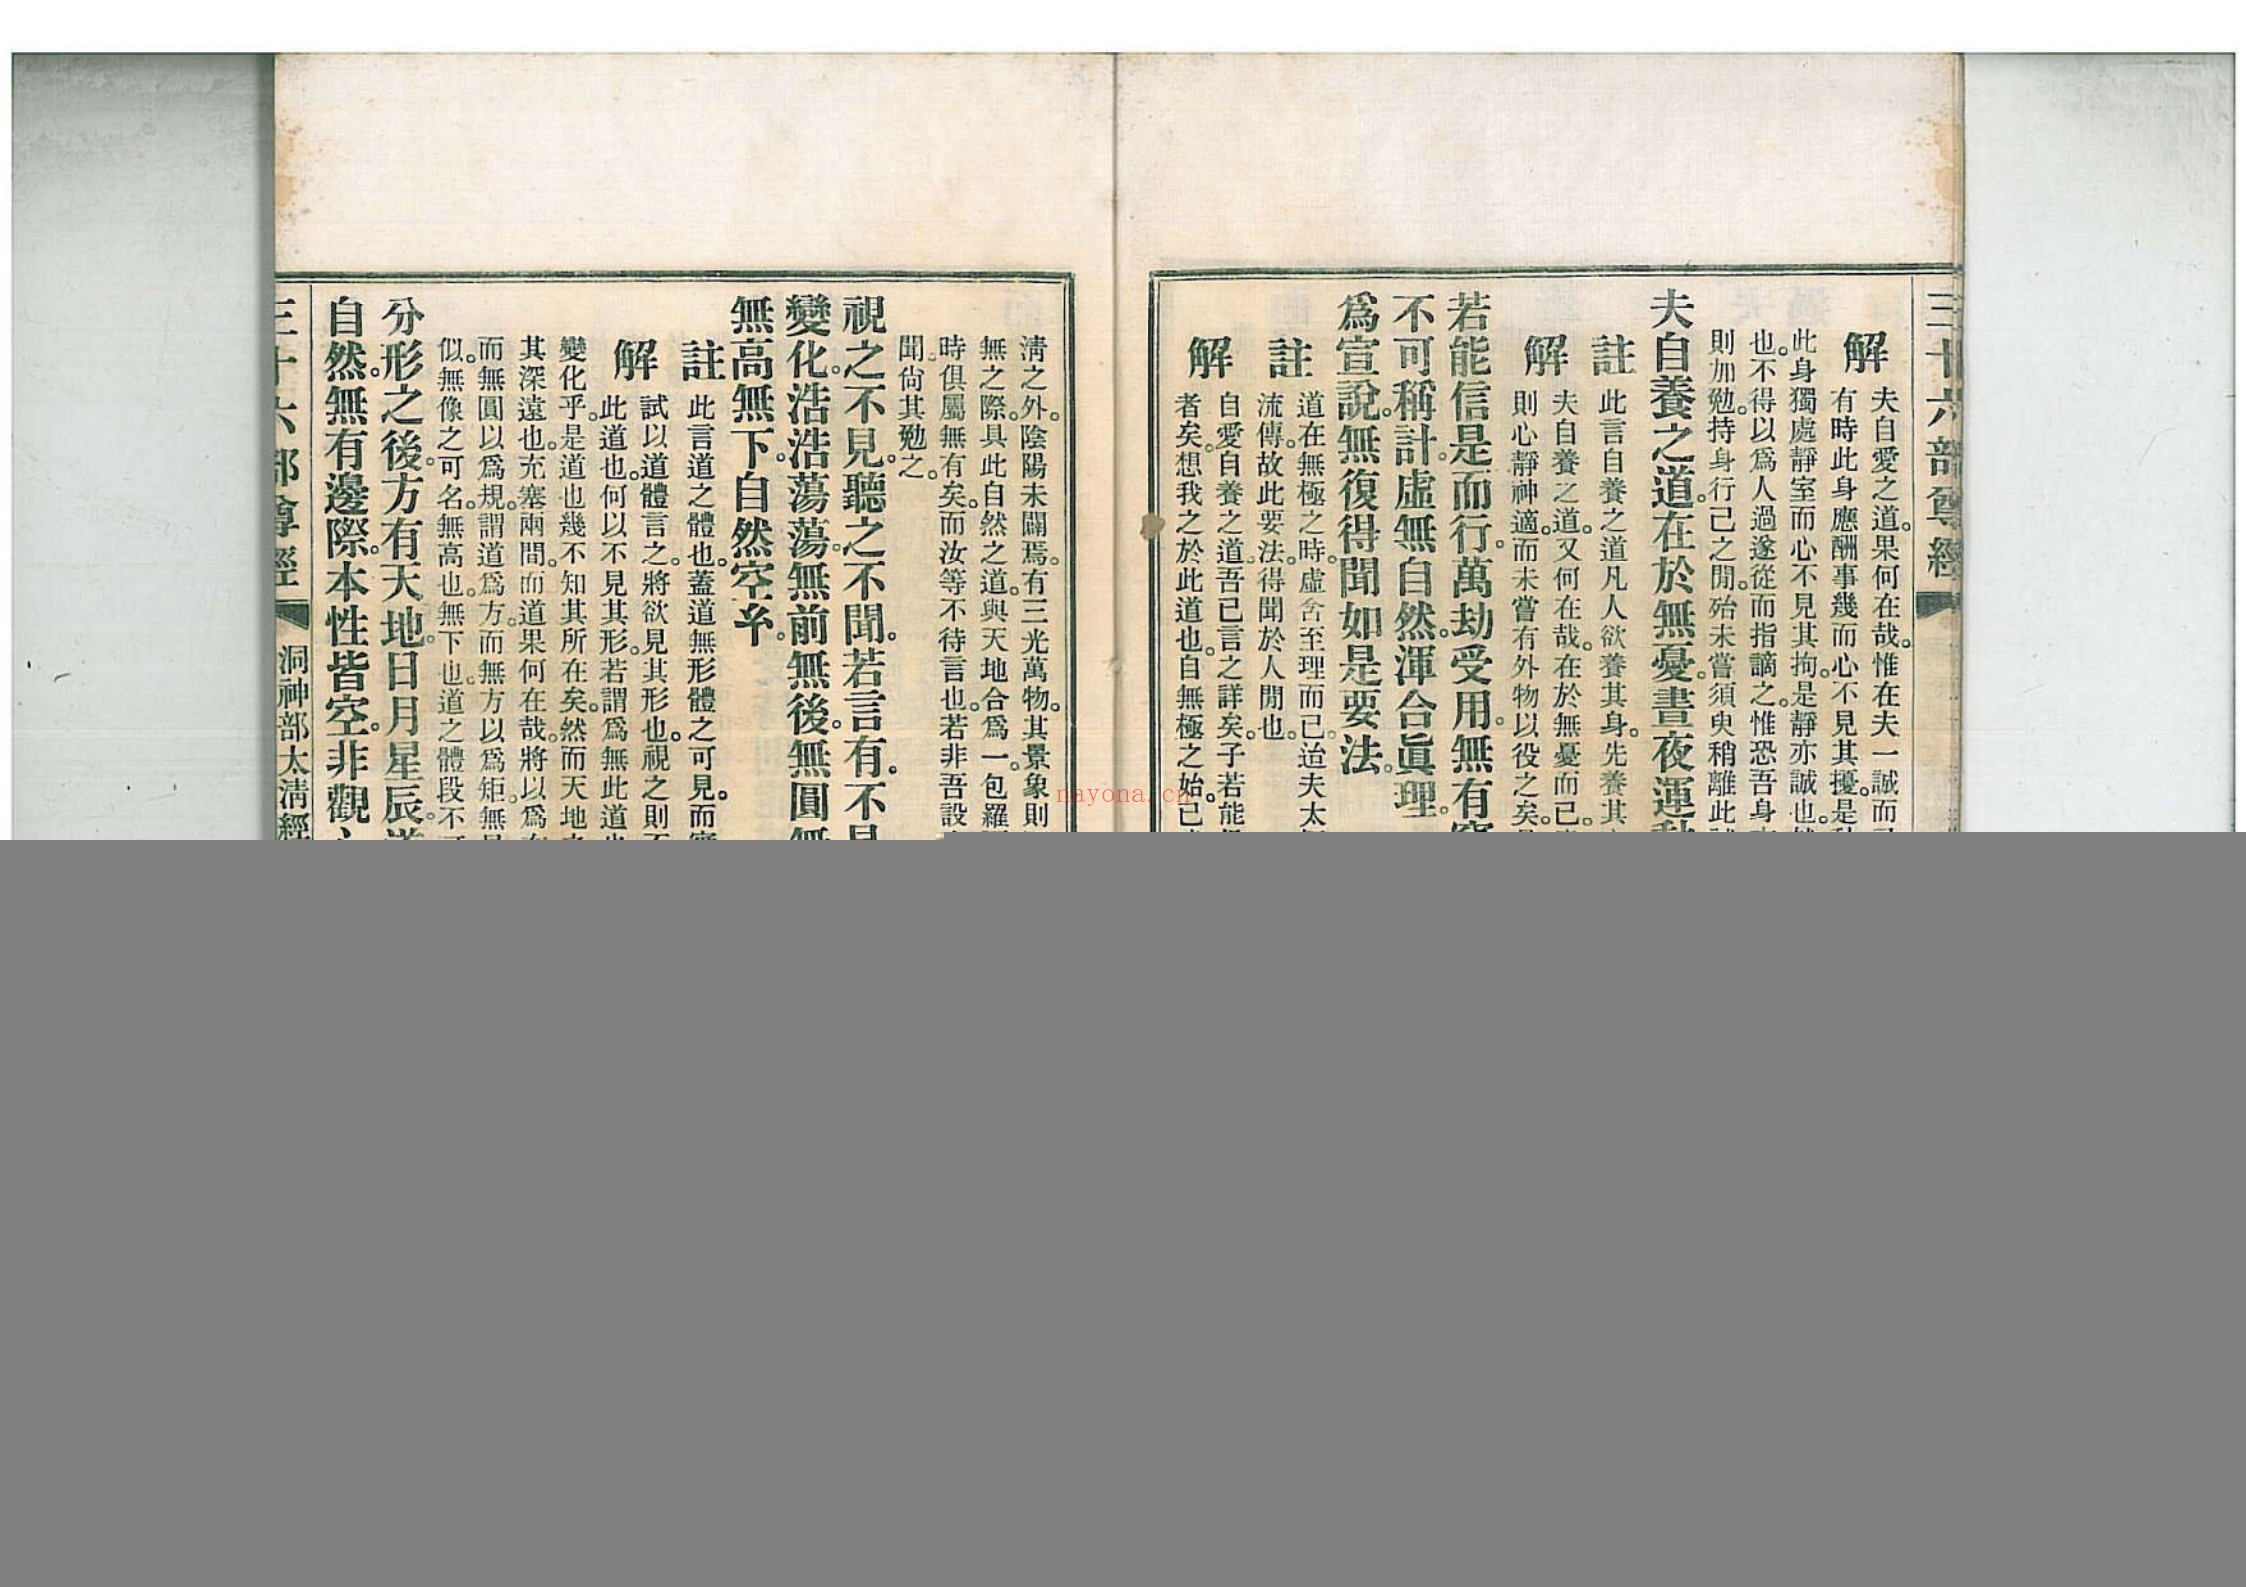 三十六部尊經
解
夫自愛之道。果何在哉。惟在夫一誠而
有時此身應酬事幾而心不見其擾。是
此身獨處靜室而心不見其拘。是靜亦誠也。
也。不得以爲人過遂從而指謫之。惟恐吾身
則加勉。持身行己之間。殆未嘗須臾稍離此
夫自養之道。在於無憂。晝夜運
註
此言自養之道凡人欲養其身。先養其
解
夫自養之道。又何在哉。在於無憂而已。
則心靜神適。而未嘗有外物以役之矣。
若能信是而行。萬劫受用。無有
不可稱計。虛無自然。渾合眞理。
爲宣說。無復得聞如是要法。
註
道在無極之時。虛含至理而已。迨夫太
流傳。故此要法。得聞於人間也。
解
自愛自養之道。吾已言之詳矣。子若能
者矣。想我之於此道也。自無極之始。已
淸之外。陰陽未闢焉。有三光萬物。其景象則
無之際。具此自然之道。與天地合爲一。包羅
時俱屬無有矣。而汝等不待言也。若非吾設
聞尙其勉之。
視之不見。聽之不聞。若言有。不
變化。浩浩蕩蕩。無前無後。無圓
無高無下。自然空
註
此言道之體也。蓋道無形體之可見。而
解
試以道體言之。將欲見其形也。視之則
此道也。何以不見其形。若謂爲無此道
變化乎。是道也幾不知其所在矣。然而天地
其深遠也。充塞兩間。而道果何在哉。將以爲
而無圓以爲規。謂道爲方。而無方以爲矩。無
似。無像之可名。無高也。無下也。道之體段不
分形之後。方有天地。日月星辰。
自然。無有邊際。本性皆空。非觀
三十六部尊經
洞神部太淸經
nayona.cn